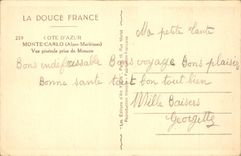 LA DOUCE FRANCE
CÔTE D'AZUR
219 MONTE-CARLO (Alpes-Maritimes)
Vue générale prise de Monaco
Ma petite tante
Bons voyage Bons plaisir
Bonne sante tout bon tout bien
Mille Baisers
Georgette